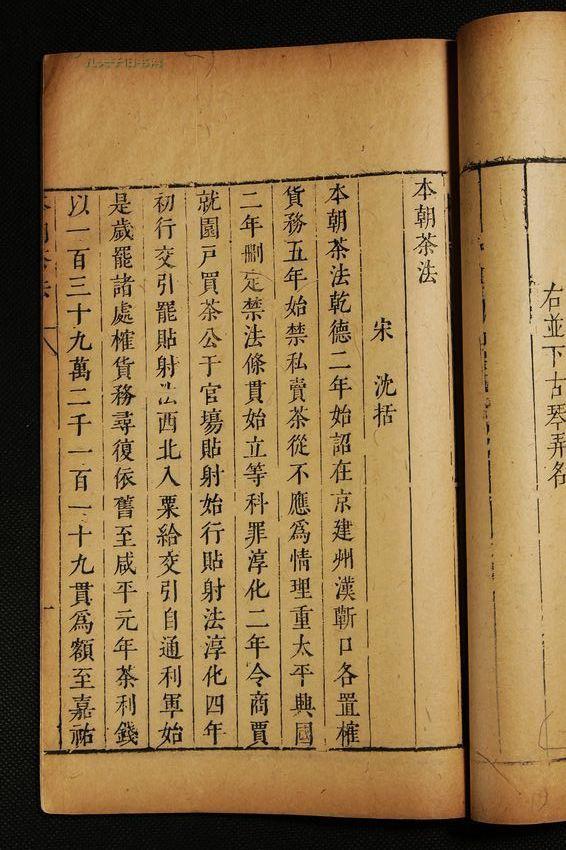 右並下古琴弄名
本朝茶法
宋 沈括
本朝茶法乾德二年始詔在京建州漢蘄口各置榷
貨務五年始禁私賣茶從不應爲情理重太平興國
二年刪定禁法條貫始立等科罪淳化二年令商賈
就園戶買茶公于官場貼射始行貼射法淳化四年
初行交引罷貼射法西北入粟給交引自通利軍始
是歲罷諸處榷貨務尋復依舊至咸平元年茶利錢
以一百三十九萬二千一百一十九貫爲額至嘉祐
本朝茶法
一